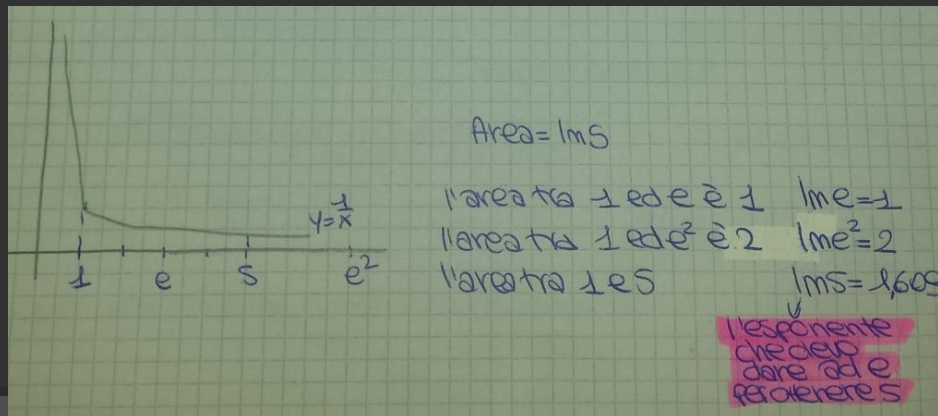 Area = ln5
l'area tra 1 ed e è 1 ln e = 1
l'area tra 1 ed e² è 2 ln e² = 2
l'area tra 1 e 5 ln5 = 1,609
l'esponente
che devo
dare ad e
per ottenere 5
y = 1/x
1 e 5 e²